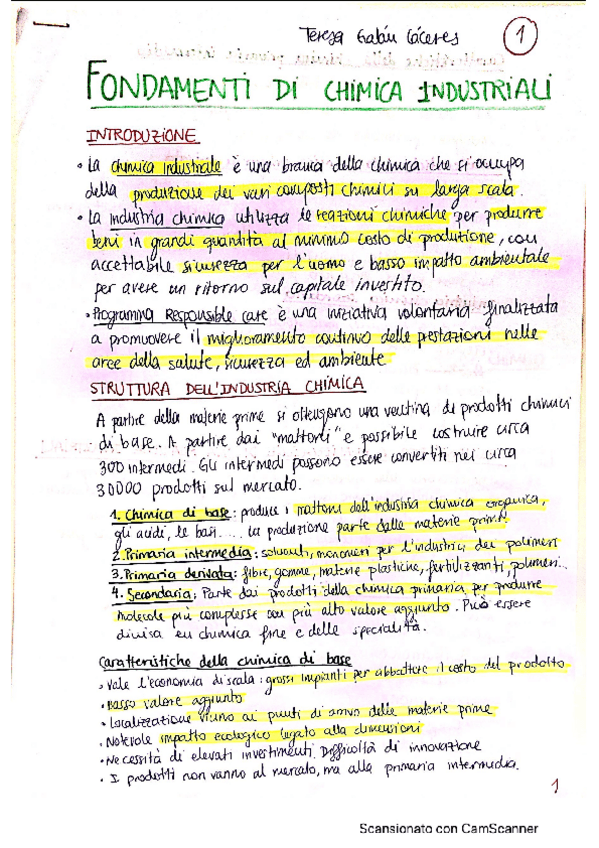 Teresa Galán Cáceres 1
FONDAMENTI DI CHIMICA INDUSTRIALI
INTRODUZIONE
• La chimica industriale è una branca della chimica che si occupa
della produzione dei vari composti chimici su larga scala.
• La industria chimica utilizza le reazioni chimiche per produrre
beni in grandi quantità al minimo costo di produzione, con
accettabile sicurezza per l'uomo e basso impatto ambientale
per avere un ritorno sul capitale investito.
• Programma Responsible care è una iniziativa volontaria finalizzata
a promuovere il miglioramento continuo delle prestazioni nelle
aree della salute, sicurezza ed ambiente
STRUTTURA DELL'INDUSTRIA CHIMICA
A partire della materie prime si ottengono una ventina di prodotti chimici
di base. A partire dai "mattoni" è possibile costruire circa
300 intermedi. Gli intermedi possono essere convertiti nei circa
30000 prodotti sul mercato.
1. Chimica di base: produce i mattoni dell'industria chimica organica,
gli acidi, le basi..... La produzione parte dalle materie prime.
2. Primaria intermedia: solventi, monomeri per l'industria dei polimeri
3. Primaria derivata: fibre, gomme, materie plastiche, fertilizzanti, polimeri...
4. Secondaria: Parte dai prodotti della chimica primaria per produrre
molecole più complesse con più alto valore aggiunto. Può essere
divisa en chimica fine e delle specialità.
Caratteristiche della chimica di base
• Vale l'economia di scala: grossi impianti per abbattere il costo del prodotto
• Basso valore aggiunto
• Localizzazione vicino ai punti di arrivo delle materie prime
• Notevole impatto ecologico legato alla dimensioni
• Necessità di elevati investimenti. Difficoltà di innovazione
• I prodotti non vanno al mercato, ma alla primaria intermedia.
1
Scansionato con CamScanner